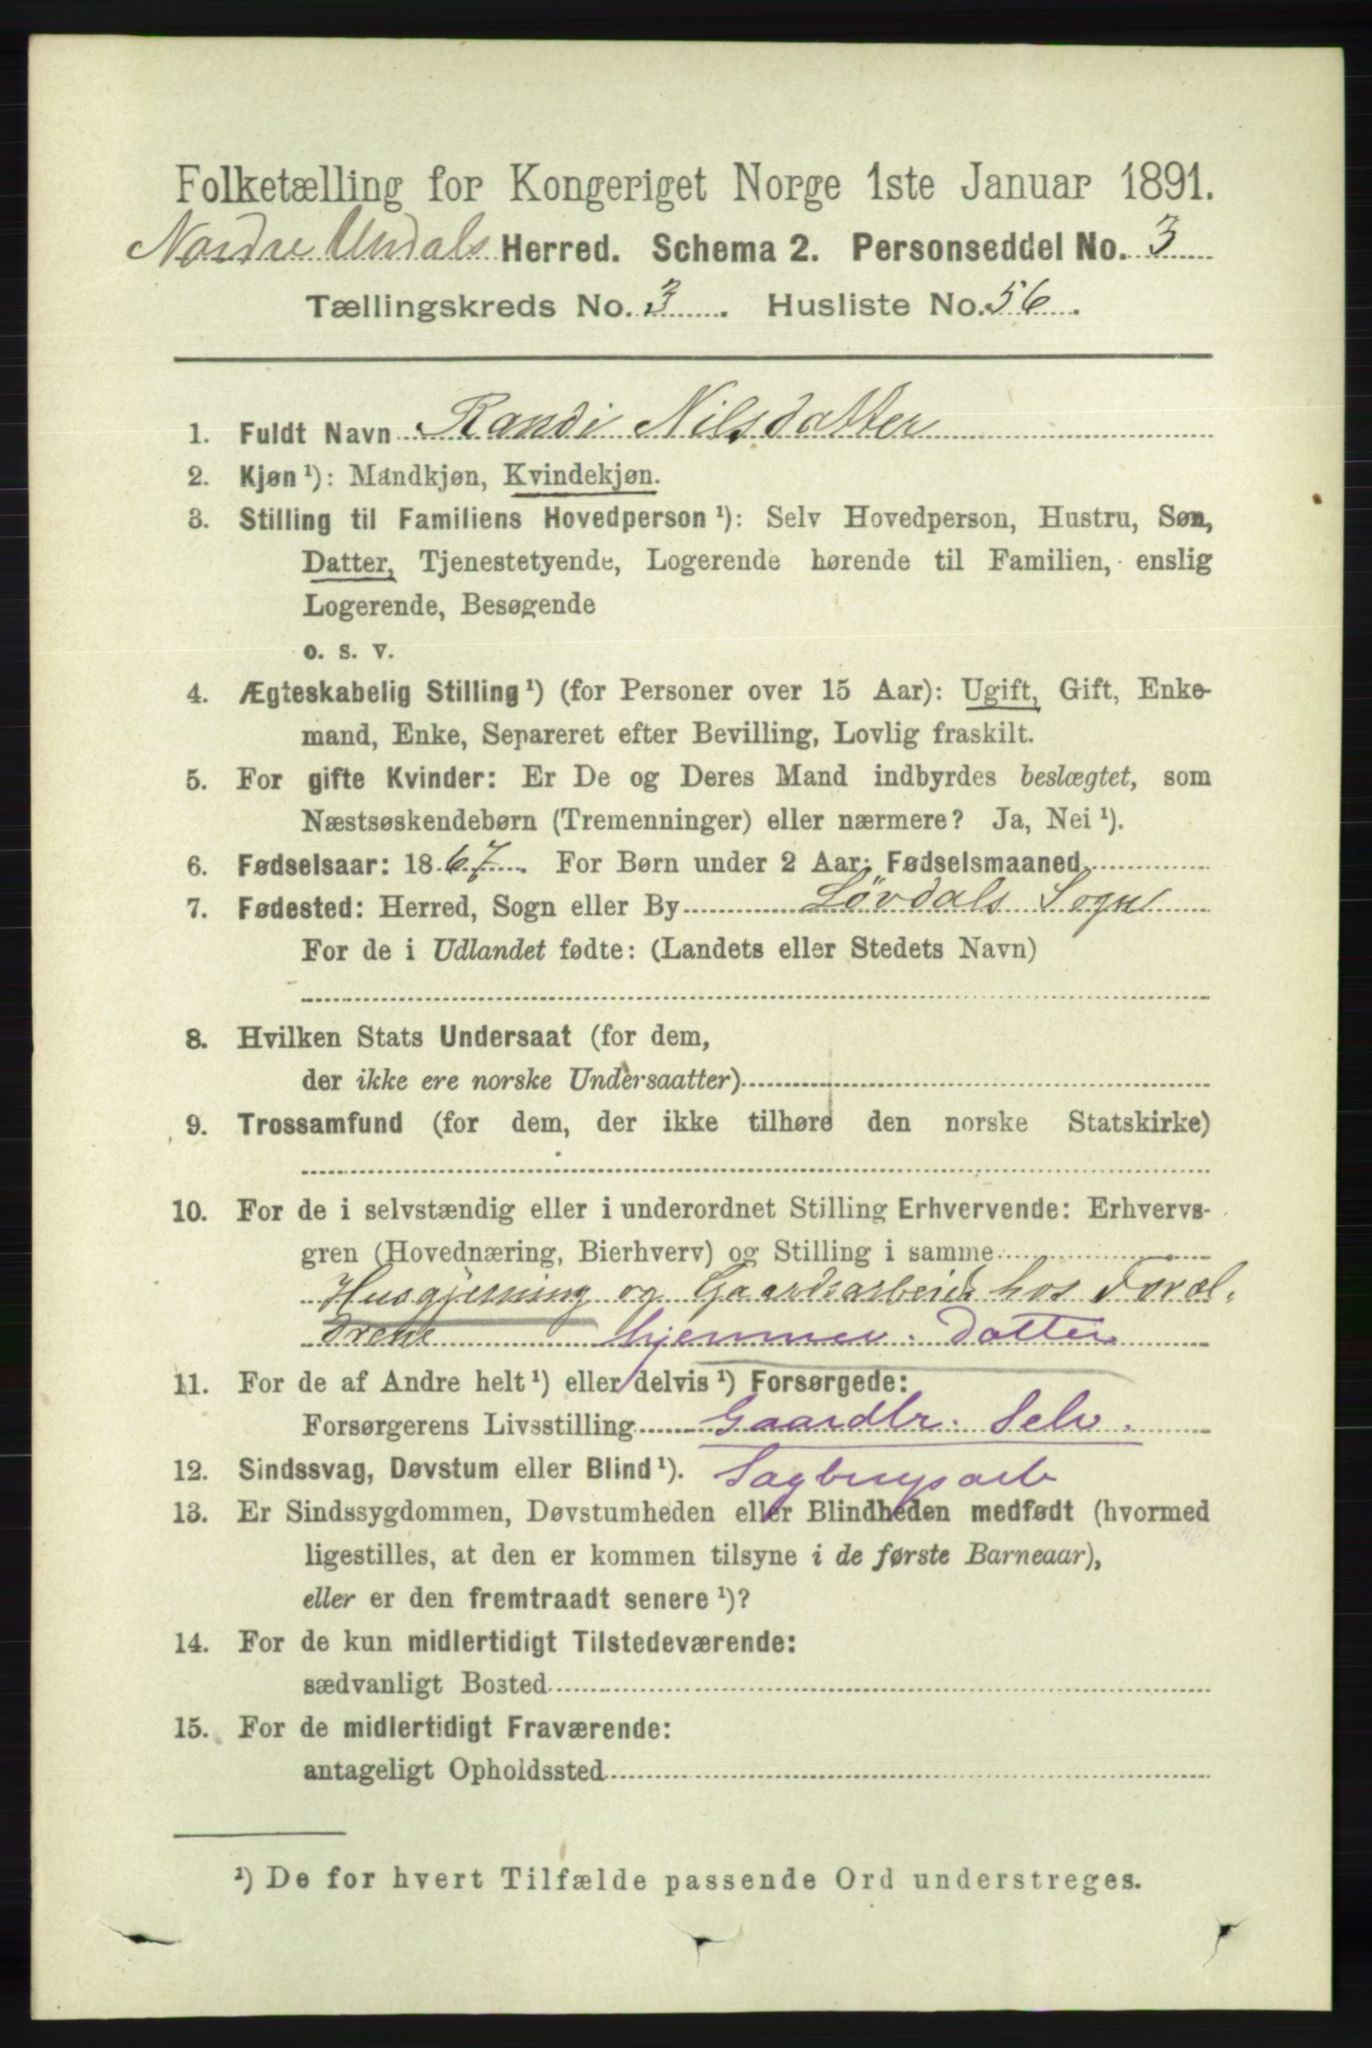 Folketælling for Kongeriget Norge 1ste Januar 1891.
Nordre Undals Herred. Schema 2. Personseddel No. 3
Tællingskreds No. 3. Husliste No. 56.
1. Fuldt Navn Randi Nilsdatter
2. Kjøn ¹): Mandkjøn, Kvindekjøn.
3. Stilling til Familiens Hovedperson ¹): Selv Hovedperson, Hustru, Søn,
Datter, Tjenestetyende, Logerende hørende til Familien, enslig
Logerende, Besøgende
o. s. v.
4. Ægteskabelig Stilling ¹) (for Personer over 15 Aar): Ugift, Gift, Enke-
mand, Enke, Separeret efter Bevilling, Lovlig fraskilt.
5. For gifte Kvinder: Er De og Deres Mand indbyrdes beslægtet, som
Næstsøskendebørn (Tremenninger) eller nærmere? Ja, Nei ¹).
6. Fødselsaar: 1867. For Børn under 2 Aar: Fødselsmaaned
7. Fødested: Herred, Sogn eller By Løvdals Sogn
For de i Udlandet fødte: (Landets eller Stedets Navn)
8. Hvilken Stats Undersaat (for dem,
der ikke ere norske Undersaatter)
9. Trossamfund (for dem, der ikke tilhøre den norske Statskirke)
10. For de i selvstændig eller i underordnet Stilling Erhvervende: Erhvervs-
gren (Hovednæring, Bierhverv) og Stilling i samme
Husgjerning og Gaardsarbeide hos Foræl-
drene hjemmev. Datter
11. For de af Andre helt ¹) eller delvis ¹) Forsørgede:
Forsørgerens Livsstilling Gaardbr. Selv.
12. Sindssvag, Døvstum eller Blind ¹). Sagbrugsarb
13. Er Sindssygdommen, Døvstumheden eller Blindheden medfødt (hvormed
ligestilles, at den er kommen tilsyne i de første Barneaar),
eller er den fremtraadt senere ¹)?
14. For de kun midlertidigt Tilstedeværende:
sædvanligt Bosted
15. For de midlertidigt Fraværende:
antageligt Opholdssted
¹) De for hvert Tilfælde passende Ord understreges.